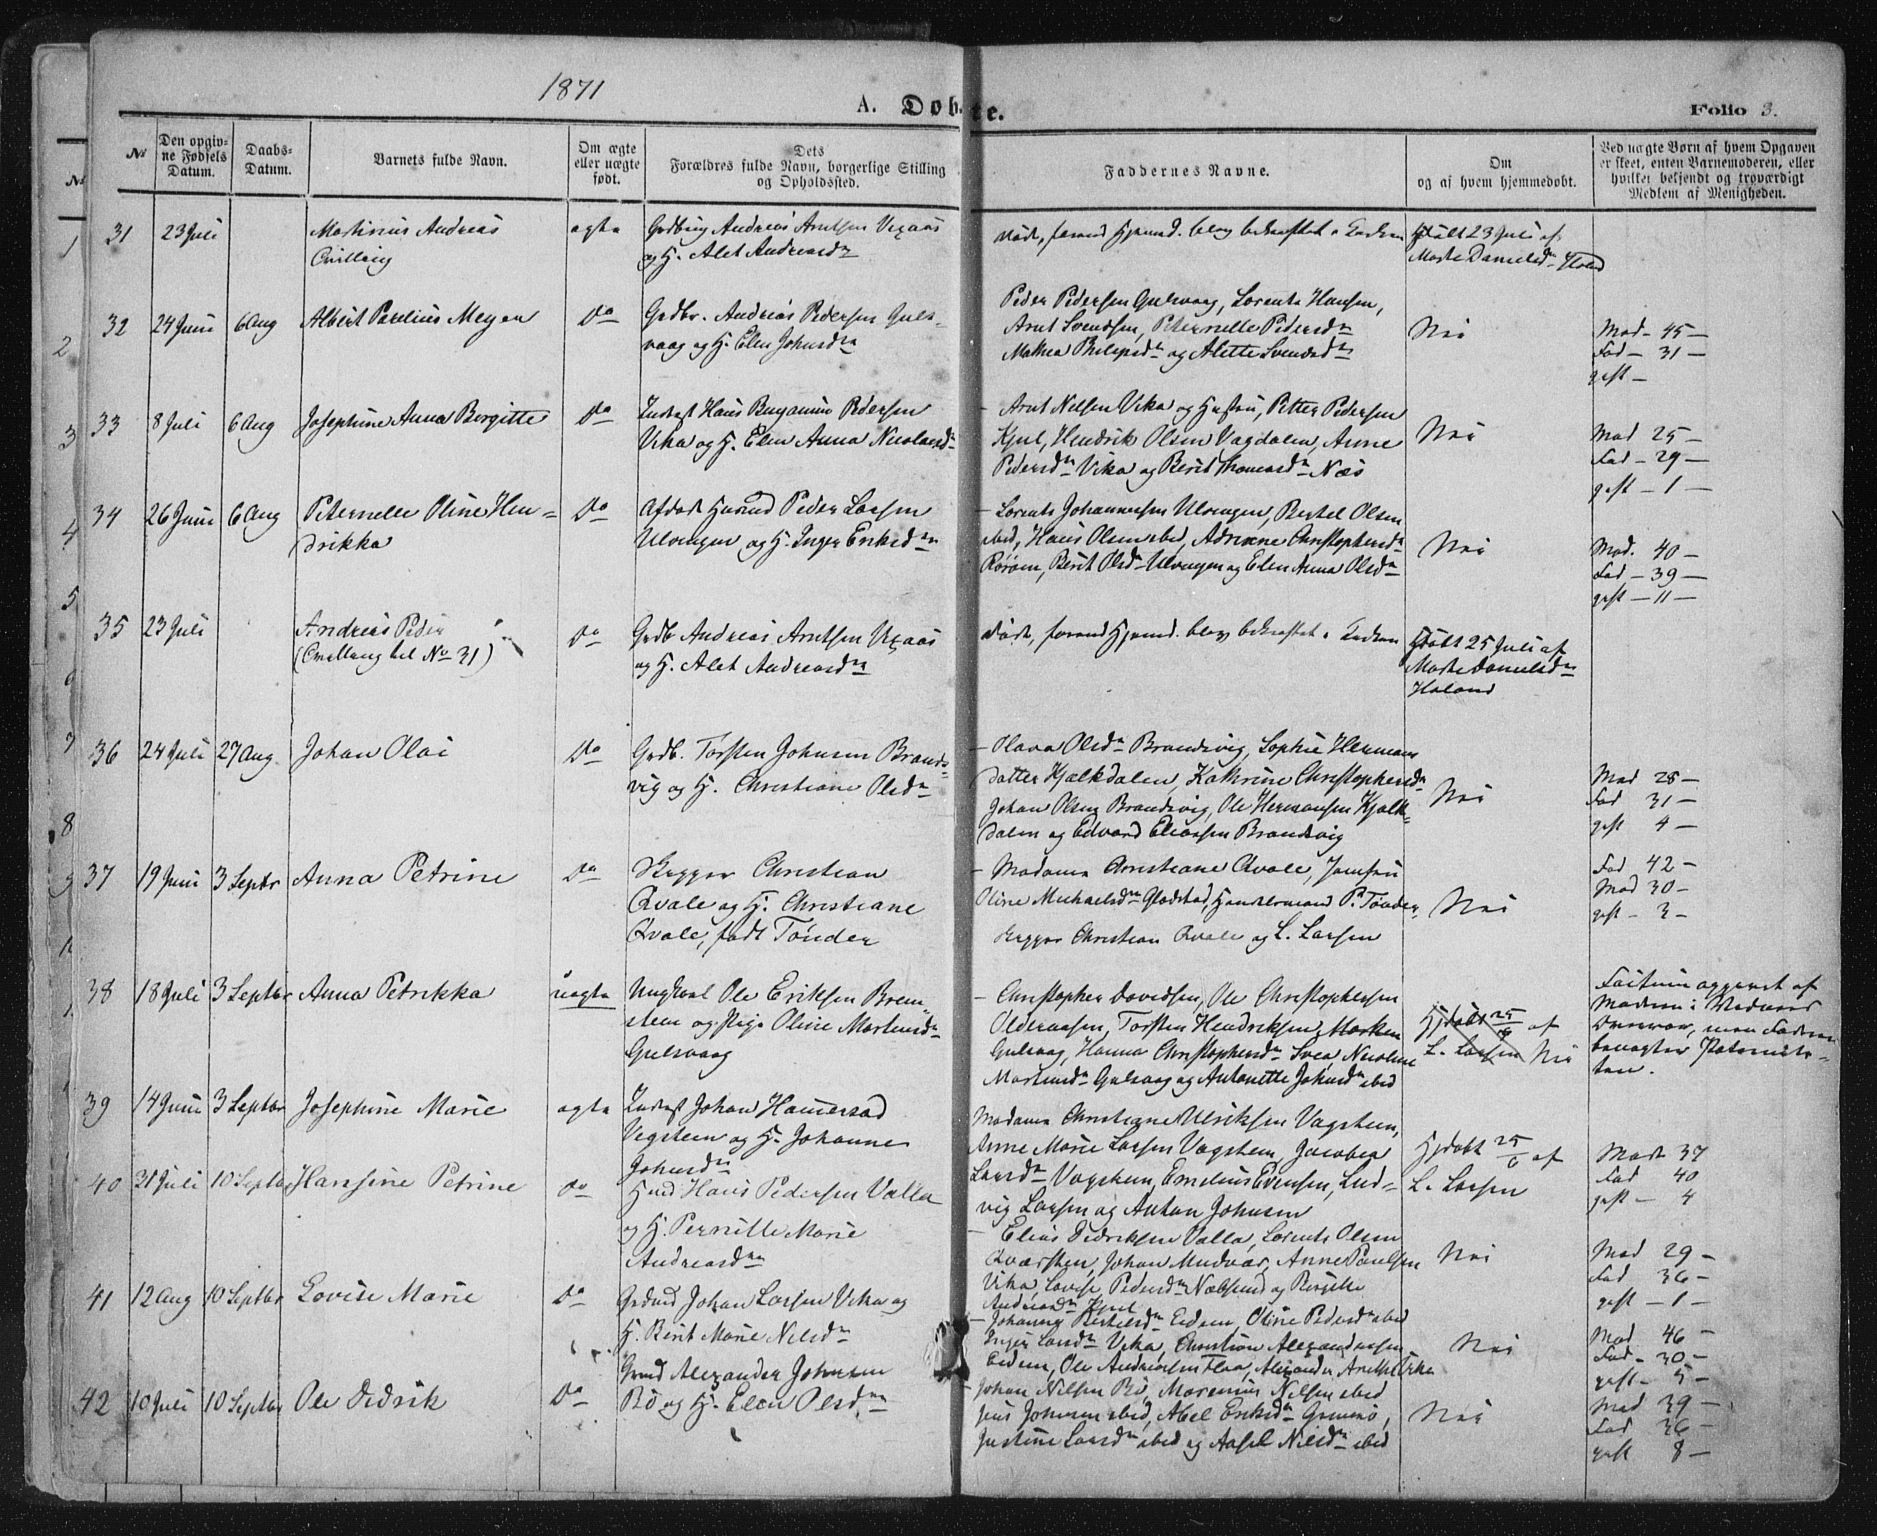 1871
A. Døbte.
Folio 3.
№
Den opgiv-
ne Fødsels
Datum.
Daabs-
Datum.
Barnets fulde Navn.
Om ægte
eller uægte
født.
Dets
Forældres fulde Navn, borgerlige Stilling
og Opholdssted.
Faddernes Navne.
Om
og af hvem hjemmedøbt.
Ved uægte Børn af hvem Opgaven
er skeet, enten Barnemoderen, eller
hvilket bekjendt og troværdigt
Medlem af Menigheden.
31 23 Juli Martinus Andreas ægte Grdbrug Andreas Arntsen
og H. Alet Andreasdr
døde, forend Hjemmd. blev bekræftet i Kirken
Hjdøbt 23 Juli af
Marte Danielsdr
32 24 Juni 6 Aug Albert Parelius Meyer Do Grdbr. Andreas Pedersen Guls-
vaag og H. Elen Johnsdr
Peder Pedersen Gulsvaag, Lorents Hansen,
Arnt Svendsen, Peternelle Pedersdr
Mathea Philipsdr og Alette Svendsdr
Nei
Mod - 45 -
Fad - 31 -
gift -
33 8 Juli 6 Aug Josephine Anna Birgitte Do Inderst Hans Benjamin Pedersen
Vika og H. Elen Anna Nicolaisdr
- Arnt Nilsen Vika og Hustru, Petter Pedersen
Kjul, Hendrik Olsen Vagdalen, Anne
Pedersdr Vika og Berit Thomasdr Næs
Nei
Mod 25 -
Fad - 29 -
gift - 1 -
34 26 Juni 6 Aug Peternelle Oline Hen-
drikka
Do Afdøde Husmd Peder Larsen
Ulvangen og H. Inger Eriksdr
- Lorents Johannesen Ulvangen, Bertel Olsen
ibid, Hans Olsen ibid, Adriane Christophersdr
Rørøen, Berit Olsdr Ulvangen og Elen Anna Olsdr
Nei
Mod. 40 -
Fad - 39 -
gift - 11 -
35 23 Juli Andreas Peder
(Tvilling til No 31)
Do Grdb Andreas Arntsen
og H. Alet Andreasdr
døde, forend Hjemmd. blev bekræftet i Kirken
Hjdøbt 25 Juli af
Marte Danielsdr
Haland
36 24 Juli 27 Aug Johan Olai Do Grdb. Torsten Johnsen Brands-
vig og H. Christiane Olsdr
- Olava Olsdr Brandsvig, Sophie Hermans
datter Hjelkdalen, Kathrine Christophersdr
Johan Olsen Brandsvig, Ole Hermansen Kjelk-
dalen og Edvard Eliassen Brandsvig
Nei
Mod 28 -
Fad 31 -
gift 4 -
37 19 Juni 3 Septbr Anna Petrine Do Skipper Christian
Qvale og H. Christiane
Qvale, født Tønder
- Madame Christiane Qvale, Jomfru
Oline Michaelsdr Gladstad, Handelsmand P. Tønder,
Skipper Christian Qvale og L. Larsen
Nei
Fad 42 -
Mod 30 -
gift - 3 -
38 18 Juli 3 Septbr Anna Petrikka uægte Ungkarl Ole Eriksen Brem-
stein og Pige Oline Martinusdr
Gulsvaag
- Christopher Davidsen, Ole Christophersen
Olderaasen, Torsten Hendriksen
Gulsvaag, Hanna Christophersdr Svea Nicoline
Martinusdr Gulsvaag og Antonette Johnsdr ibid
Hjdøbt 25/6 af
L. Larsen Nei
39 14 Juni 3 Septbr Josephine Marie ægte Inderst Johan Hamersad
Vegsteen og H. Johanne
Johnsdr
Madame Christiane Ulriksen Vagsteen,
Anne Marie Larsen Vagsteen, Jacobea
Larsdr Vagsteen, Emelius Evensen, Lud-
vig Larsen og Anton Johnsen
Hjdøbt 25/6 af
L. Larsen
Mod 37
Fad 40
gift - 4
40 31 Juli 10 Septbr Hansine Petrine do Husmd Hans Pedersen Valla
og H. Pernille Marie
Andreasdr
- Elias Didriksen Valla, Lorents Olsen
Kvarsten, Johan Mudvær, Anne Paulsen
Vika, Lovise Pedersdr og Birgitte
Andreasdr Kjul
Nei
Mod 29 -
Fad 36 -
gift - 1 -
41 12 Aug 10 Septbr Lovise Marie Do Grdmd Johan Larsen Vika og
H. Berit Marie Nilsdr
- Johanna Bertelsdr Eidem, Oline Pedersdr ibid
Inger Larsdr Vika, Christian Alexandersen
Eidem, Ole Andreassen Floa, Alexander Arntsen Vika
Nei
Mod 46 -
Fad - 30 -
gift - 5 -
42 10 Juli 10 Septbr Ole Didrik Do Grmd Alexander Johnsen
Bø og H. Elen Olsdr
Johan Nilsen Bø, Marenius Nilsen ibid
Jens Johnsen ibid, Abel Eriksdr
Justine Larsdr ibid og Aasel Nilsdr ibid
Nei
Mod 39 -
Fad 36 -
gift 8 -